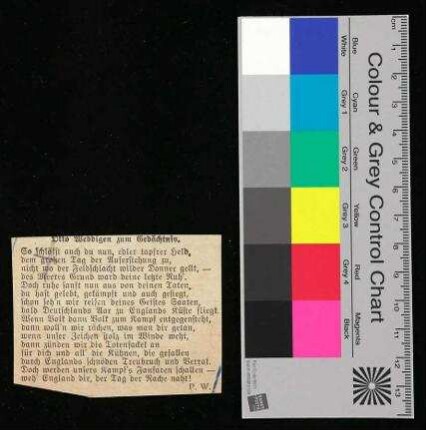 Otto Weddigen zum Gedächtnis.
So schläfst auch du nun, edler tapfrer Held,
dem großen Tag der Auferstehung zu,
nicht wo der Feldschlacht wilder Donner gellt, —
des Meeres Grund ward deine letzte Ruh'.
Doch ruhe sanft nun aus von deinen Taten,
du hast gelebt, gekämpft und auch gesiegt,
schon seh'n wir reifen deines Geistes Saaten,
bald Deutschlands Aar zu Englands Küste fliegt.
Wenn Volk dann Volk zum Kampf entgegensteht,
dann woll'n wir rächen, was man dir getan,
wenn unser Zeichen stolz im Winde weht,
dann zünden wir die Totenfackel an
für dich und all' die Kühnen, die gefallen
durch Englands schnöden Treubruch und Verrat.
Doch werden unsre Kampf's Fanfaren schallen —
weh' England dir, der Tag der Rache naht!
P. W.
Colour & Grey Control Chart
Blue Cyan Green Yellow Red Magenta
White Grey 1 Grey 2 Grey 3 Grey 4 Black
cm 1 2 3 4 5 6 7 8 9 10 11 12 13